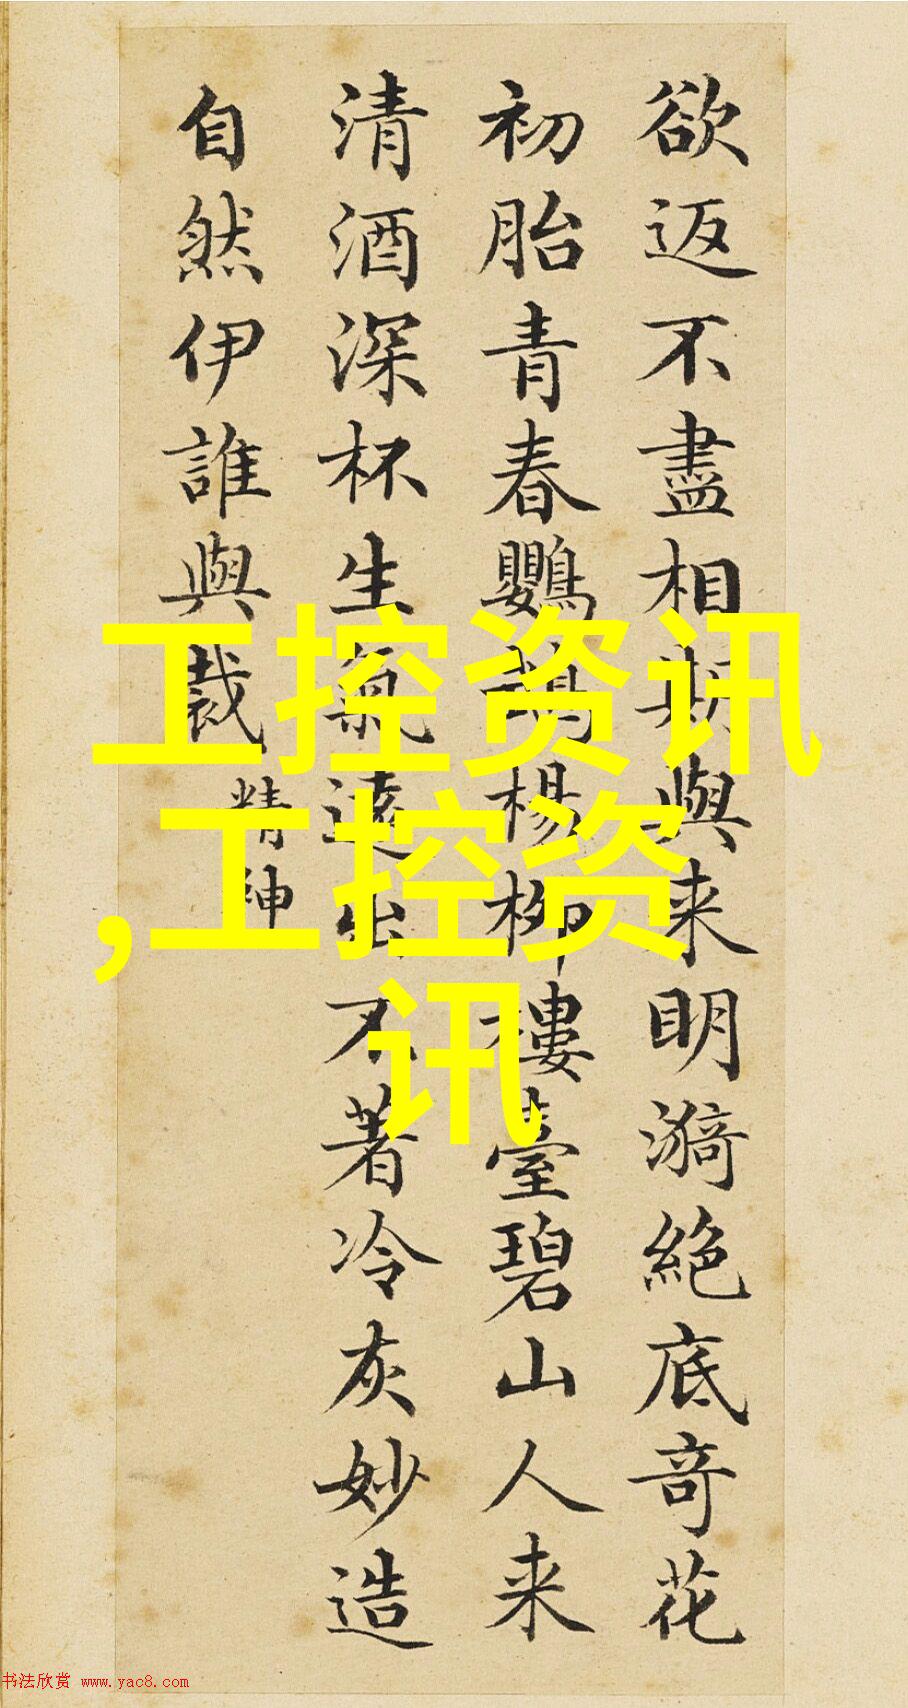 欲返不盡相期與来明漪絶底奇花
初胎青春鸚鵡楊柳樓臺碧山人来
清酒深杯生氣遠出不著冷灰妙造
自然伊誰與裁
精神
工控资讯
,工控资
讯
书法欣赏 www.yac8.com